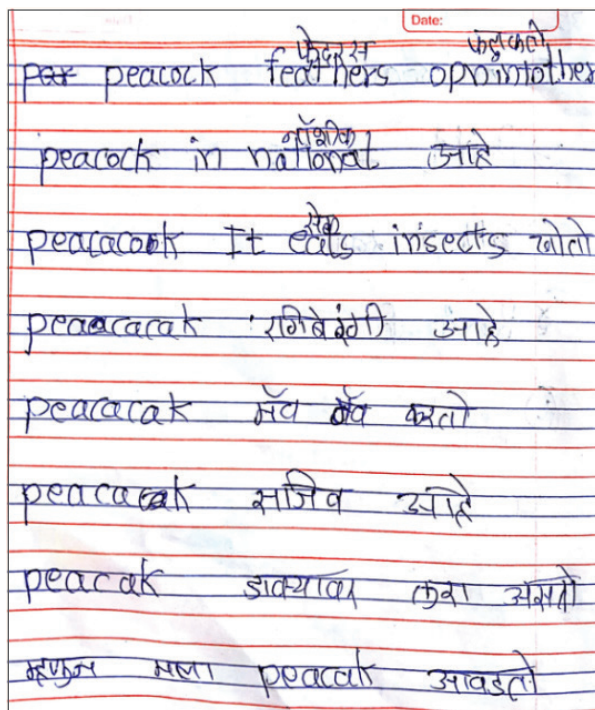 Date:
फेदरस
peacock feathers opnintother
peacock in national आहे
peacacook It eats insects खोतो
peaacacak रंगिबेरंगी आहे
peacacak मॅव मॅव करतो
peacacak सजिव आहे
peacak डोक्यावर तुरा असतो
म्हणुन मला peacak आवडतो